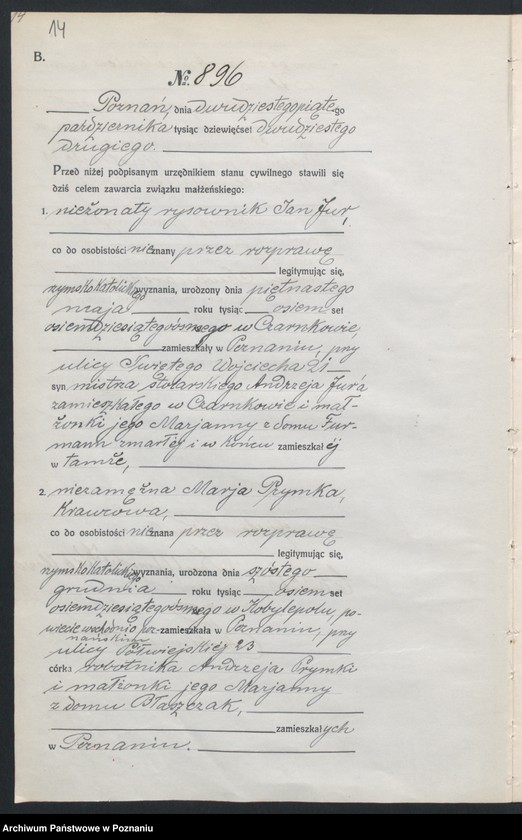 14
14
B.
№ 896
Poznań, dnia dwudziestegopiątego
października tysiąc dziewięćset dwudziestego
drugiego.
Przed niżej podpisanym urzędnikiem stanu cywilnego stawili się
dziś celem zawarcia związku małżeńskiego:
1. nieżonaty rysownik Jan Jur,
co do osobistości nieznany przez rozprawę
legitymując się,
rzymsko katolickiego wyznania, urodzony dnia piętnastego
maja roku tysiąc osiemset
osiemdziesiątegoósmego w Czarnkowie,
zamieszkały w Poznaniu, przy
ulicy Świętego Wojciecha 21
syn mistrza stolarskiego Andrzeja Jura
zamieszkałego w Czarnkowie i mał-
żonki jego Marjanny z domu Fur-
mann zmarłej i w końcu zamieszkałej
w tamże,
2. niezamężna Marja Prymka,
Krawcowa,
co do osobistości nieznana przez rozprawę
legitymując się,
rzymsko katolickiego wyznania, urodzona dnia szóstego
grudnia roku tysiąc osiemset
osiemdziesiątegoósmego w Kobylepolu, po-
wiecie wschodnio poz-
nańskim zamieszkała w Poznaniu, przy
ulicy Półwiejskiej 23
córka robotnika Andrzeja Prymki
i małżonki jego Marjanny
z domu Błaszczak,
zamieszkałych
w Poznaniu.
Archiwum Państwowe w Poznaniu
szukajwarchiwach.gov.pl